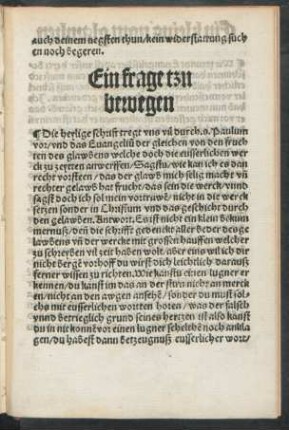 auch deinem negsten thun/ kein widerstattung such
en noch begeren.
Ein frage tzu
bewegen
¶ Die heylige schrift tregt vns vñ durch. s. Paulum
vor/ vnd das Euangeliũ der gleichen von den fruch
ten des glawbens welche doch die eusserlichen wer
ck zu zeyten anwerffen/ Sagstu/ wie kan ich es dan
recht vorsteen/ das der glaws mich selig macht vñ
rechter gelaws hat frucht/ das sein die werck/ vnnd
sagst doch ich sol mein vortruwẽ/ nicht in die werck
setzen sonder in Christum vnd das geschicht durch
den gelawben. Antwort. Es ist nicht ein klein bekum
mernuß/ deñ die schrifft gedenckt aller beder des ge
lawbens vñ der wercke mit grossen hauffen welcher
zu schreyben vil zeit haben wolt/ aber eins wil ich die
nicht berge vorhoff du wirst dich leichtlich darauß
ferner wissen zu richten. Wie kanstu einen lugner er
kennen/ du kanst im das an der stirn nicht an merck
en/ nicht an den awgen ansehẽ/ sonder du must sol
chs mit eusserlichen worten horen/ was der falsch
vnnd betrieglich grund seines hertzen ist also kanst
du in nit konnẽ vor einen lugner schelthẽ noch ankla
gen/ du habest dann betzeugnuß eusserlicher wort/